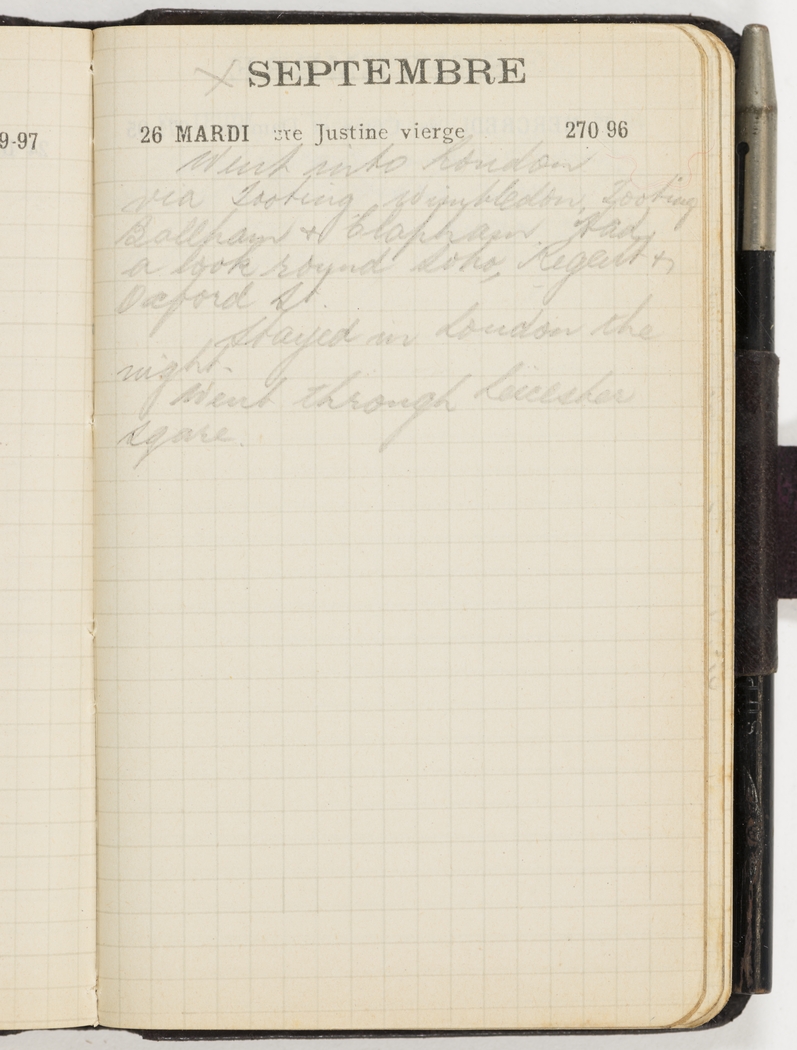 9-97
X SEPTEMBRE
26 MARDI ste Justine vierge 270 96
Went into London
via Tooting, Wimbledon, Tooting
Ballham & Clapham. Had
a look round Soho, Regent &
Oxford St.
Stayed in London the
night.
Went through Leicester
Sqare.